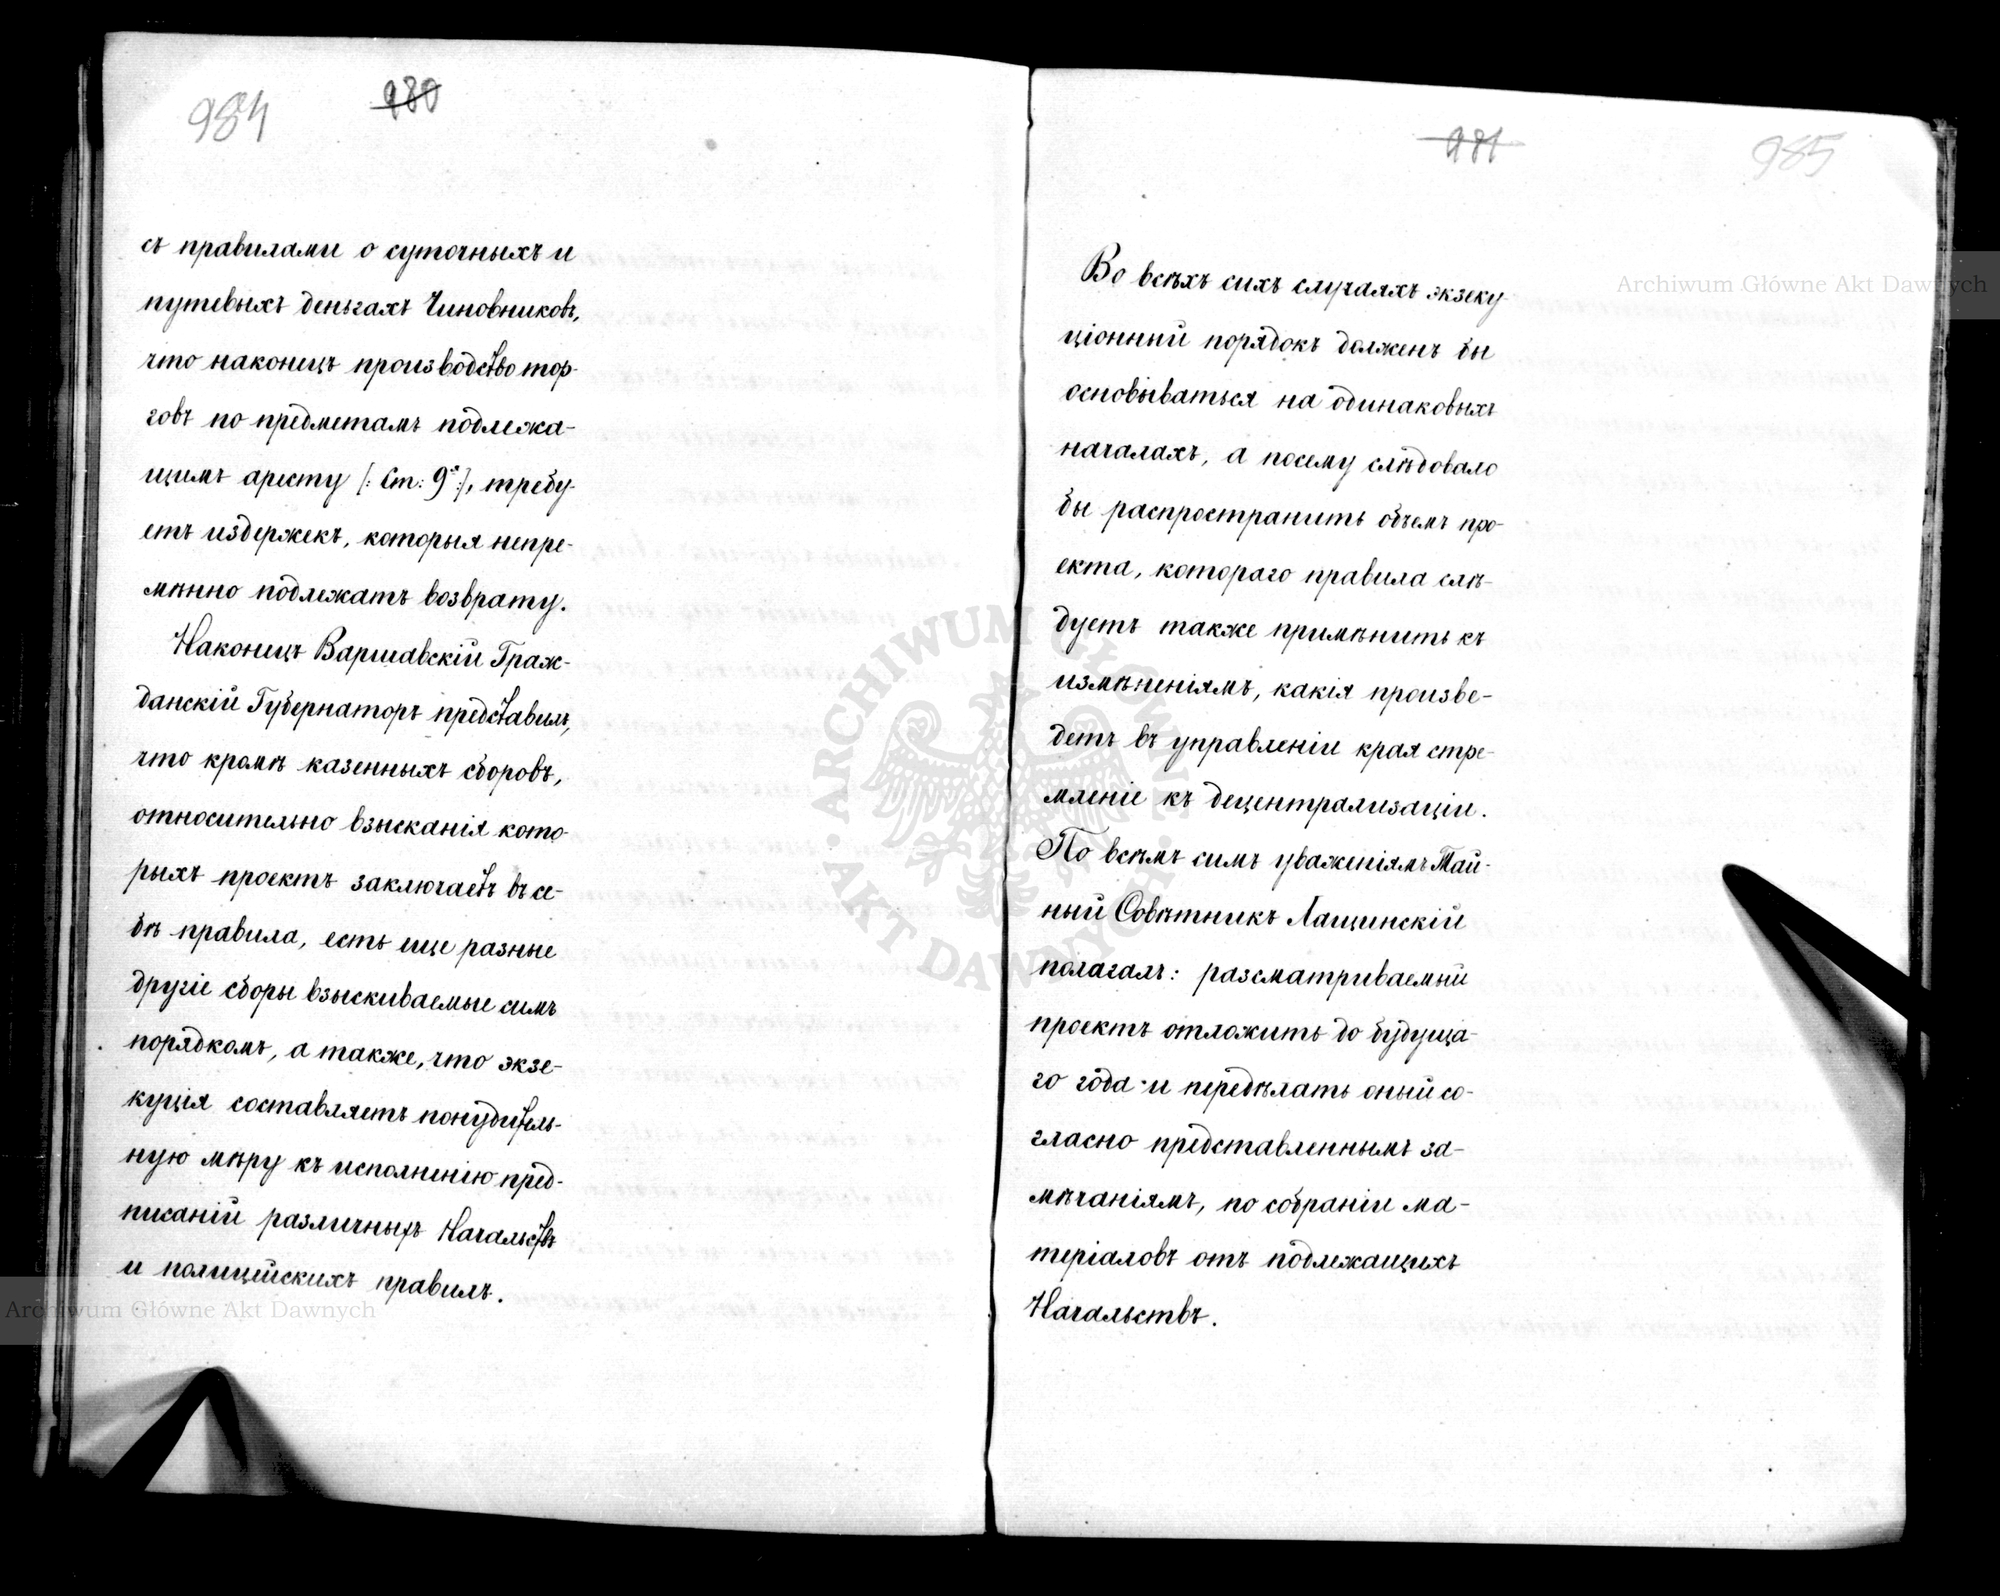 984
980
съ правилами о суточныхъ и
путевыхъ деньгахъ Чиновниковъ,
что наконецъ производство тор-
говъ по предметамъ подлежа-
щимъ аресту [: Ст: 9ª:], требу-
етъ издержекъ, которыя непре-
мѣнно подлежатъ возврату.
Наконецъ Варшавскій Граж-
данскій Губернаторъ представилъ,
что кромѣ казенныхъ сборовъ,
относительно взысканія кото-
рыхъ проектъ заключаетъ въ се-
бѣ правила, есть еще разные
другіе сборы взыскиваемые симъ
порядкомъ, а также, что экзе-
куція составляетъ понудитель-
ную мѣру къ исполненію пред-
писаній различныхъ Начальствъ
и полицейскихъ правилъ.
981
985
Во всѣхъ сихъ случаяхъ экзеку-
ціонный порядокъ долженъ бы
основываться на одинаковыхъ
началахъ, а посему слѣдовало
бы распространить объемъ про-
екта, котораго правила слѣ-
дуетъ также примѣнить къ
измѣненіямъ, какія произве-
детъ въ управленіи края стре-
мленіе къ децентрализаціи.
По всѣмъ симъ уваженіямъ Тай-
ный Совѣтникъ Лащинскій
полагалъ: разсматриваемый
проектъ отложить до будуща-
го года и передѣлать оный со-
гласно представленнымъ за-
мѣчаніямъ, по собраніи ма-
теріаловъ отъ подлежащихъ
Начальствъ.
Archiwum Główne Akt Dawnych
Archiwum Główne Akt Dawnych
ARCHIWUM GŁÓWNE AKT DAWNYCH